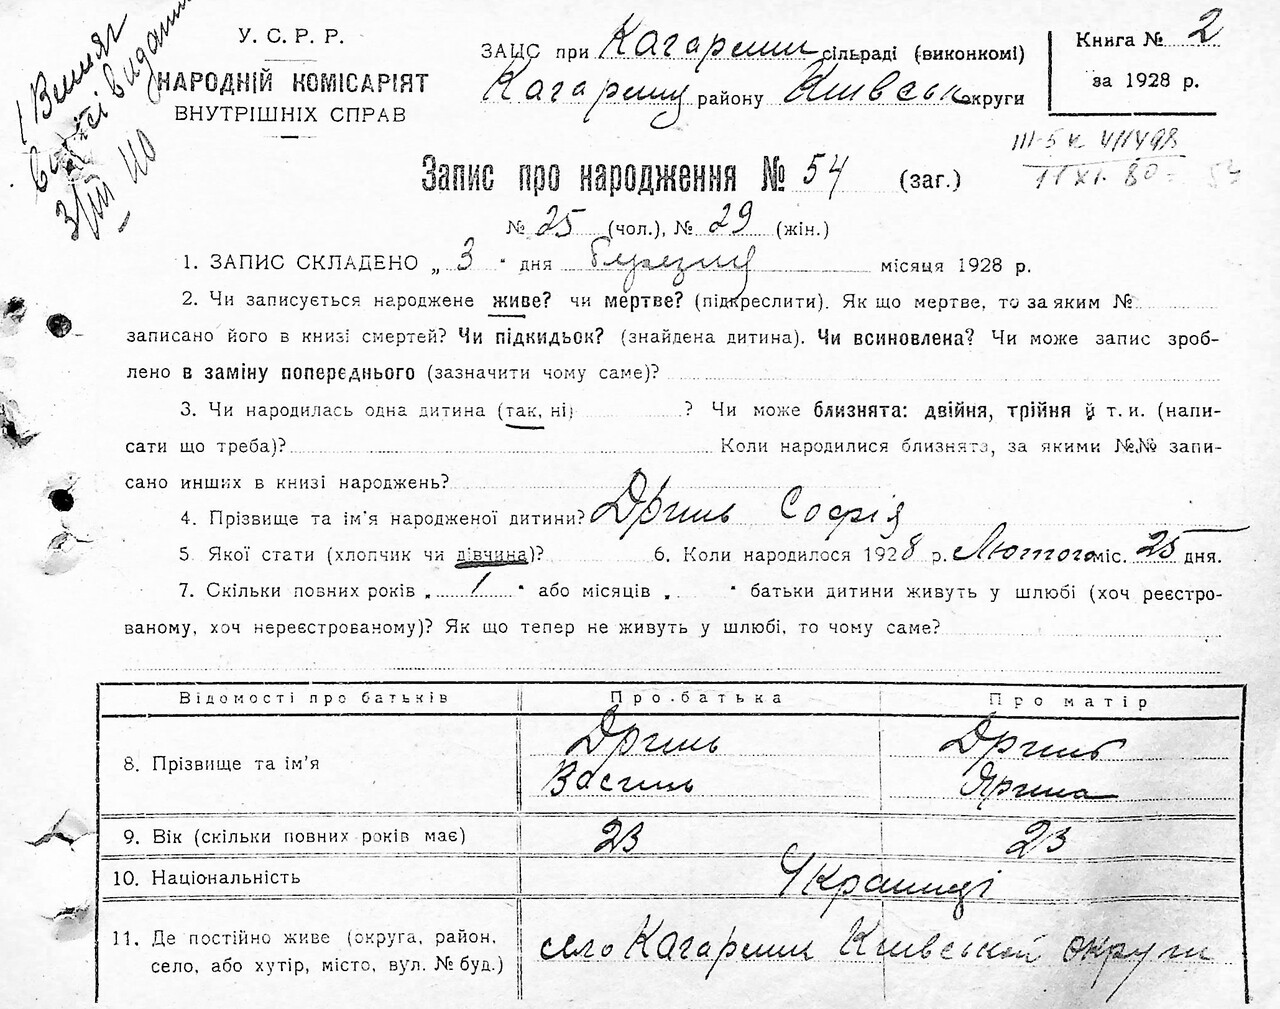 У. С. Р. Р.
НАРОДНІЙ КОМІСАРІЯТ
ВНУТРІШНІХ СПРАВ
ЗАЦС при Кагарлик сільраді (виконкомі)
Кагарлиц району Київськ округи
Книга № 2
за 1928 р.
1 Витяг
видан
Запис про народження № 54 (заг.)
11 XI. 80 54
№ 25 (чол.), № 29 (жін.)
1. ЗАПИС СКЛАДЕНО „ 3 " дня березня місяця 1928 р.
2. Чи записується народжене живе? чи мертве? (підкреслити). Як що мертве, то за яким №
записано його в книзі смертей? Чи підкидьок? (знайдена дитина). Чи всиновлена? Чи може запис зроб-
лено в заміну попереднього (зазначити чому саме)?
3. Чи народилась одна дитина (так, ні) ? Чи може близнята: двійня, трійня й т. и. (напи-
сати що треба)? Коли народилися близнята, за якими №№ запи-
сано инших в книзі народжень?
4. Прізвище та ім'я народженої дитини? Дригиль Софія
5. Якої стати (хлопчик чи дівчина)? 6. Коли народилося 1928 р. Лютого міс. 25 дня.
7. Скільки повних років „ 1 " або місяців „ " батьки дитини живуть у шлюбі (хоч реєстро-
ваному, хоч нереєстрованому)? Як що тепер не живуть у шлюбі, то чому саме?
Відомості про батьків Про батька Про матір
8. Прізвище та ім'я
Василь Ярина
9. Вік (скільки повних років має) 23 23
10. Національність Українці
11. Де постійно живе (округа, район,
село, або хутір, місто, вул. № буд.) село Кагарлик Київської округи